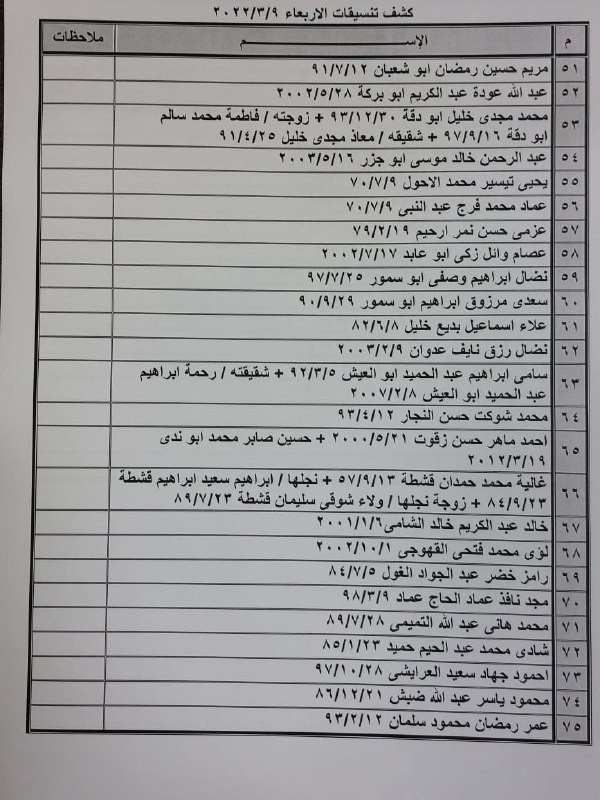 كشف تنسيقات الاربعاء ٢٠٢٢/٣/٩
م الإســـــــم ملاحظات
٥١ مريم حسين رمضان ابو شعبان ٩١/٧/١٢
٥٢ عبد الله عودة عبد الكريم ابو بركة ٢٠٠٢/٥/٢٨
٥٣ محمد مجدى خليل ابو دقة ٩٣/١٢/٣٠ + زوجته / فاطمة محمد سالم
ابو دقة ٩٧/٩/١٦ + شقيقه / معاذ مجدى خليل ٩١/٤/٢٥
٥٤ عبد الرحمن خالد موسى ابو جزر ٢٠٠٣/٥/١٦
٥٥ يحيى تيسير محمد الاحول ٧٠/٧/٩
٥٦ عماد محمد فرج عبد النبى ٧٠/٧/٩
٥٧ عزمى حسن نمر ارحيم ٧٩/٢/١٩
٥٨ عصام وائل زكى ابو عابد ٢٠٠٢/٧/١٧
٥٩ نضال ابراهيم وصفى ابو سمور ٩٧/٧/٢٥
٦٠ سعدى مرزوق ابراهيم ابو سمور ٩٠/٩/٢٩
٦١ علاء اسماعيل بديع خليل ٨٢/٦/٨
٦٢ نضال رزق نايف عدوان ٢٠٠٣/٢/٩
٦٣ سامى ابراهيم عبد الحميد ابو العيش ٩٢/٣/٥ + شقيقته / رحمة ابراهيم
عبد الحميد ابو العيش ٢٠٠٧/٢/٨
٦٤ محمد شوكت حسن النجار ٩٣/٤/١٢
٦٥ احمد ماهر حسن زقوت ٢٠٠٠/٥/٢١ + حسين صابر محمد ابو ندى
٢٠١٢/٣/١٩
٦٦ غالية محمد حمدان قشطة ٥٧/٩/١٣ + نجلها / ابراهيم سعيد ابراهيم قشطة
٨٤/٩/٢٣ + زوجة نجلها / ولاء شوقى سليمان قشطة ٨٩/٧/٢٣
٦٧ خالد عبد الكريم خالد الشامى ٢٠٠١/١/٦
٦٨ لؤى محمد فتحى القهوجى ٢٠٠٢/١٠/١
٦٩ رامز خضر عبد الجواد الغول ٨٤/٧/٥
٧٠ مجد نافذ عماد الحاج عماد ٩٨/٣/٩
٧١ محمد هانى عبد الله التميمى ٨٩/٧/٢٨
٧٢ شادى محمد عبد الحيم حميد ٨٥/١/٢٣
٧٣ احمود جهاد سعيد العرايشى ٩٧/١٠/٢٨
٧٤ محمود ياسر عبد الله ضبش ٨٦/١٢/٢١
٧٥ عمر رمضان محمود سلمان ٩٣/٢/١٢